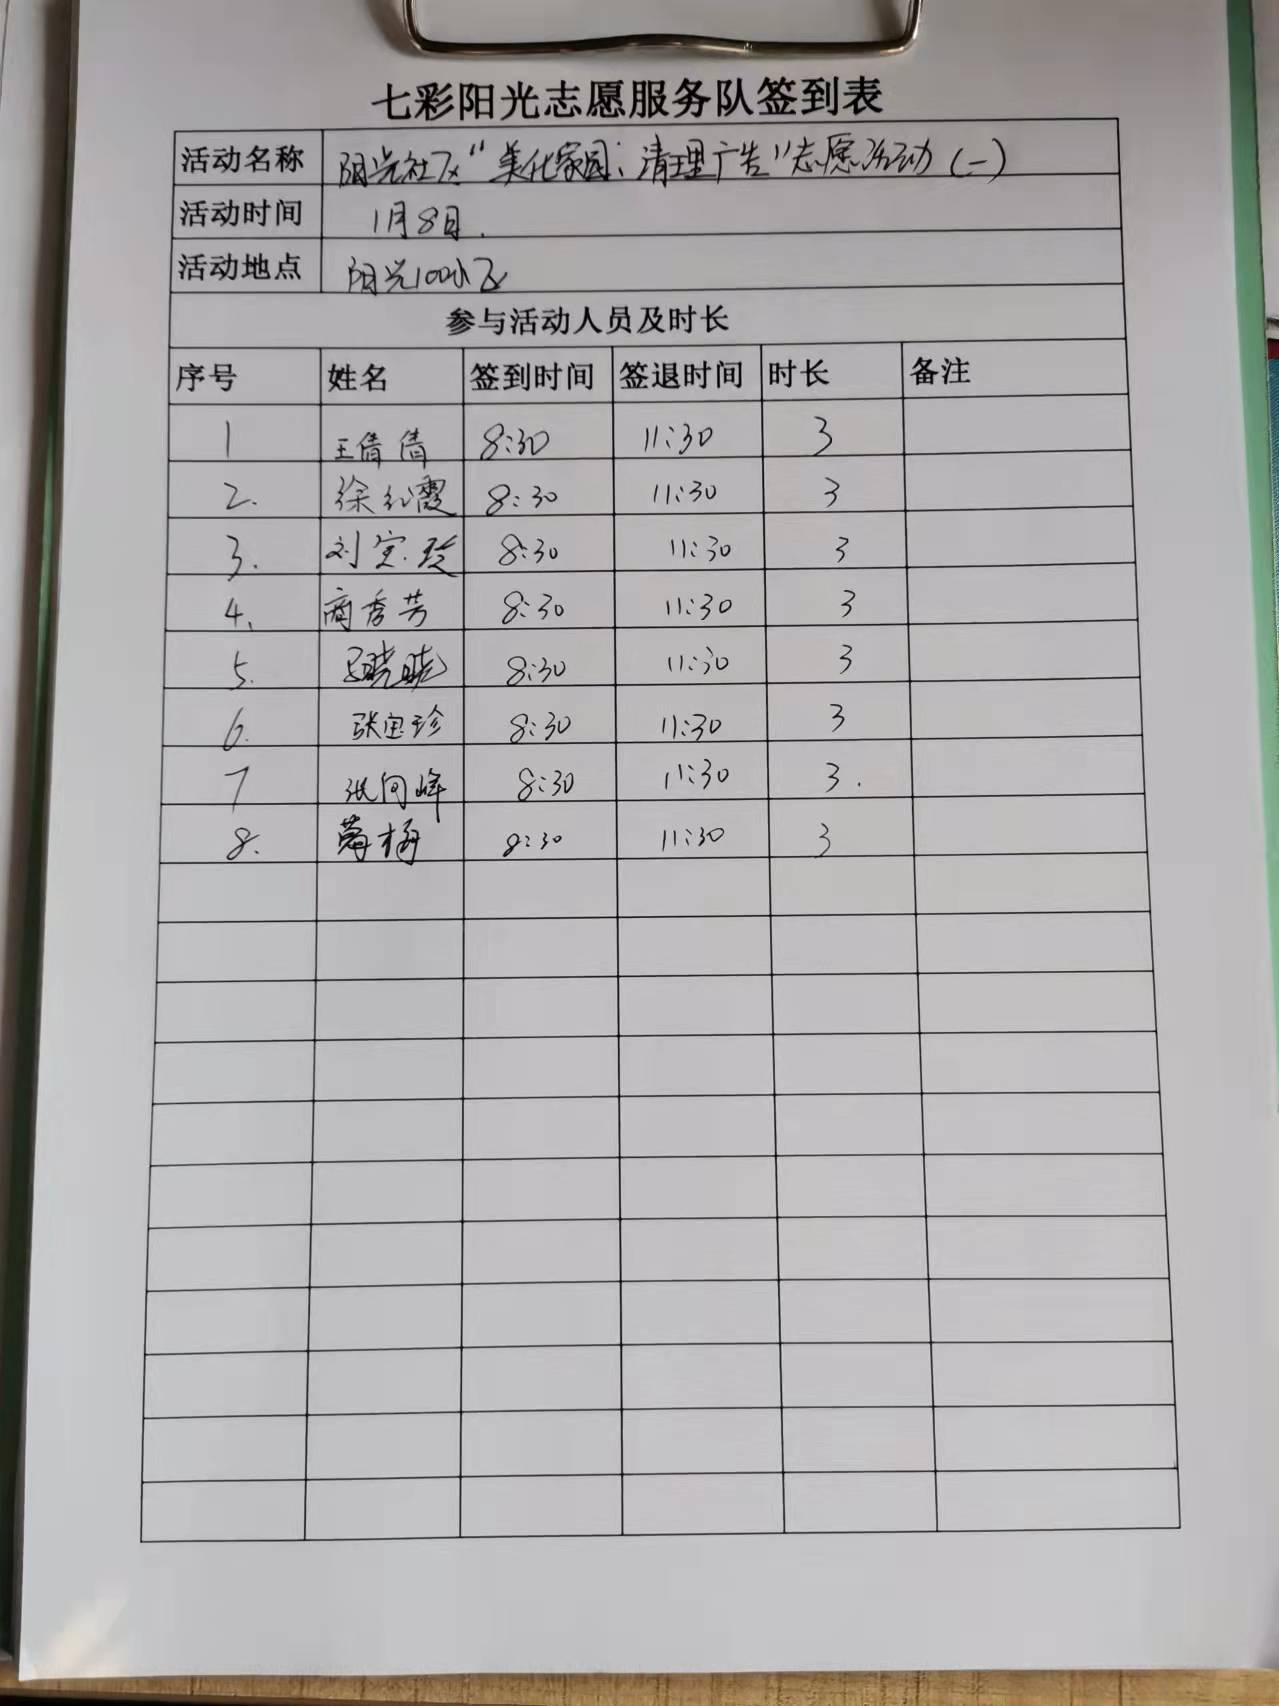 七彩阳光志愿服务队签到表
活动名称 阳光社区“美化家园，清理广告”志愿活动（一）
活动时间 1月8日.
活动地点 阳光100小区
参与活动人员及时长
序号 姓名 签到时间 签退时间 时长 备注
1 王倩倩 8:30 11:30 3
2. 徐红霞 8:30 11:30 3
3. 刘宝玲 8:30 11:30 3
4、 商秀芳 8:30 11:30 3
5. 晓晓 8:30 11:30 3
6. 张宝珍 8:30 11:30 3
7 张向峰 8:30 11:30 3.
8. 梅 8:30 11:30 3